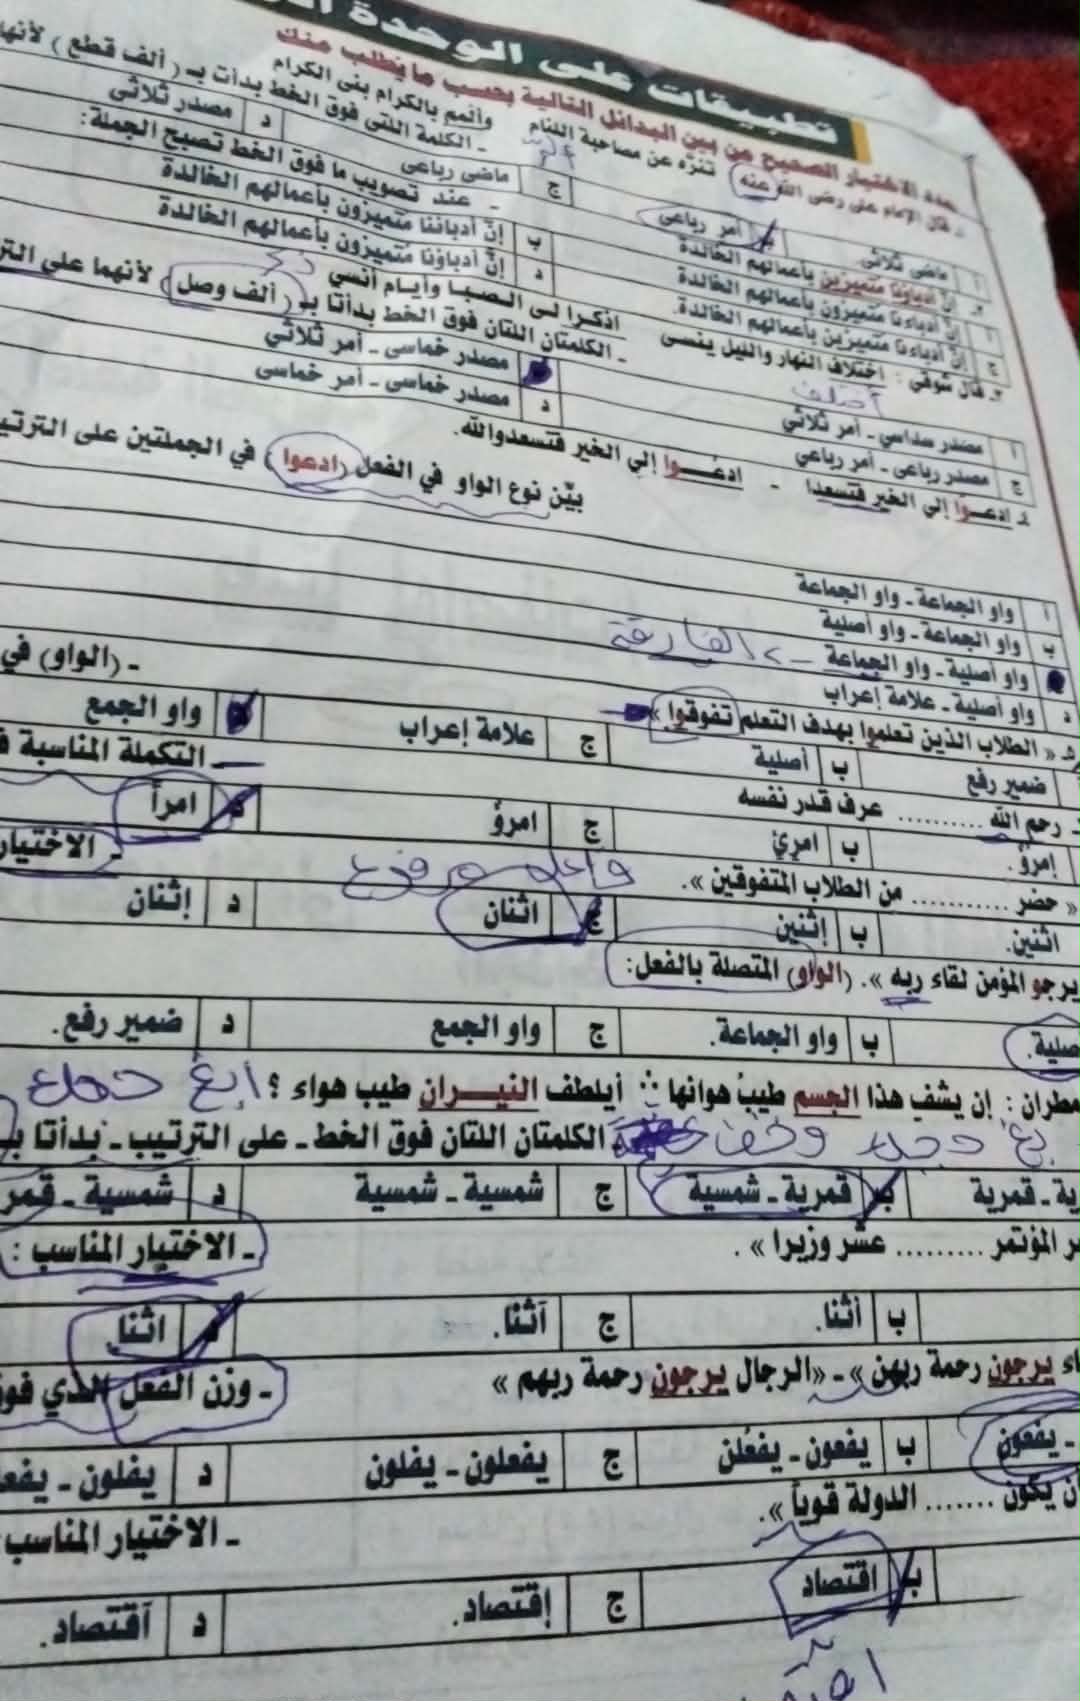 تطبيقات على الوحدة
حدد الاختيار الصحيح من بين البدائل التالية بحسب ما يُطلب منك
١ـ قال الإمام على رضى الله عنه تنزه عن مصاحبة اللئام وألمم بالكرام بنى الكرام
ـ الكلمة اللتى فوق الخط بدأت بـ (ألف قطع) لأنها
أ ماضى ثلاثى. ب أمر رباعى ج ماضى رباعى د مصدر ثلاثى
٢ـ إنّ أدباؤنا متميزين بأعمالهم الخالدة ـ عند تصويب ما فوق الخط تصبح الجملة:
أ إنّ أدباءنا متميزون بأعمالهم الخالدة ب إنّ أدبائنا متميزون بأعمالهم الخالدة
ج إنّ أدباءنا متميزين بأعمالهم الخالدة. د إنّ أدباؤنا متميزون بأعمالهم الخالدة
٣ـ قال شوقي : اختلاف النهار والليل ينسى اذكرا لى الصبا وأيام أنسي
ـ الكلمتان اللتان فوق الخط بدأتا بـ (ألف وصل) لأنهما على
أ مصدر سداسي ـ أمر ثلاثي ب مصدر خماسى ـ أمر ثلاثي
ج مصدر رباعى ـ أمر رباعي د مصدر خماسى ـ أمر خماسى
٤ـ ادعوا إلي الخير فتسعدا ـ ادعوا إلي الخير فتسعدوالله.
بيّن نوع الواو في الفعل (ادعوا) في الجملتين على
أ واو الجماعة ـ واو الجماعة
ب واو الجماعة ـ واو أصلية
واو أصلية ـ واو الجماعة ـ> الفارقة
د واو أصلية ـ علامة إعراب
« الطلاب الذين تعلموا بهدف التعلم تفوقوا » ـ (الواو) في
ضمير رفع ب أصلية ج علامة إعراب د واو الجمع
رحم الله .......... عرف قدر نفسه ـ التكملة المناسبة
إمرؤ. ب امرئ ج امرؤ د امرأ
« حضر .......... من الطلاب المتفوقين ». فاعل مرفوع ـ الاختيار
اثنين. ب إثنين ج اثنان د إثنان
يرجو المؤمن لقاء ربه ». (الواو) المتصلة بالفعل:
صلية. ب واو الجماعة. ج واو الجمع د ضمير رفع.
مطران : إن يشف هذا الجسم طيبُ هوائها ∴ أيلطف النيران طيب هواء ؟
الكلمتان اللتان فوق الخط ـ على الترتيب ـ بدأتا بـ
ية ـ قمرية ب قمرية ـ شمسية ج شمسية ـ شمسية د شمسية ـ قمر
ر المؤتمر ......... عشر وزيرا » . ـ الاختيار المناسب :
ب أثنا. ج آثنا. د اثنا.
اء يرجون رحمة ربهن » ـ «الرجال يرجون رحمة ربهم » ـ وزن الفعل الذي فوق
ـ يفعون ب يفعون ـ يفعلن ج يفعلون ـ يفلون د يفلون ـ يفعل
ن يكون ....... الدولة قوياً ». ـ الاختيار المناسب
ب اقتصاد ج إقتصاد. د آقتصاد.